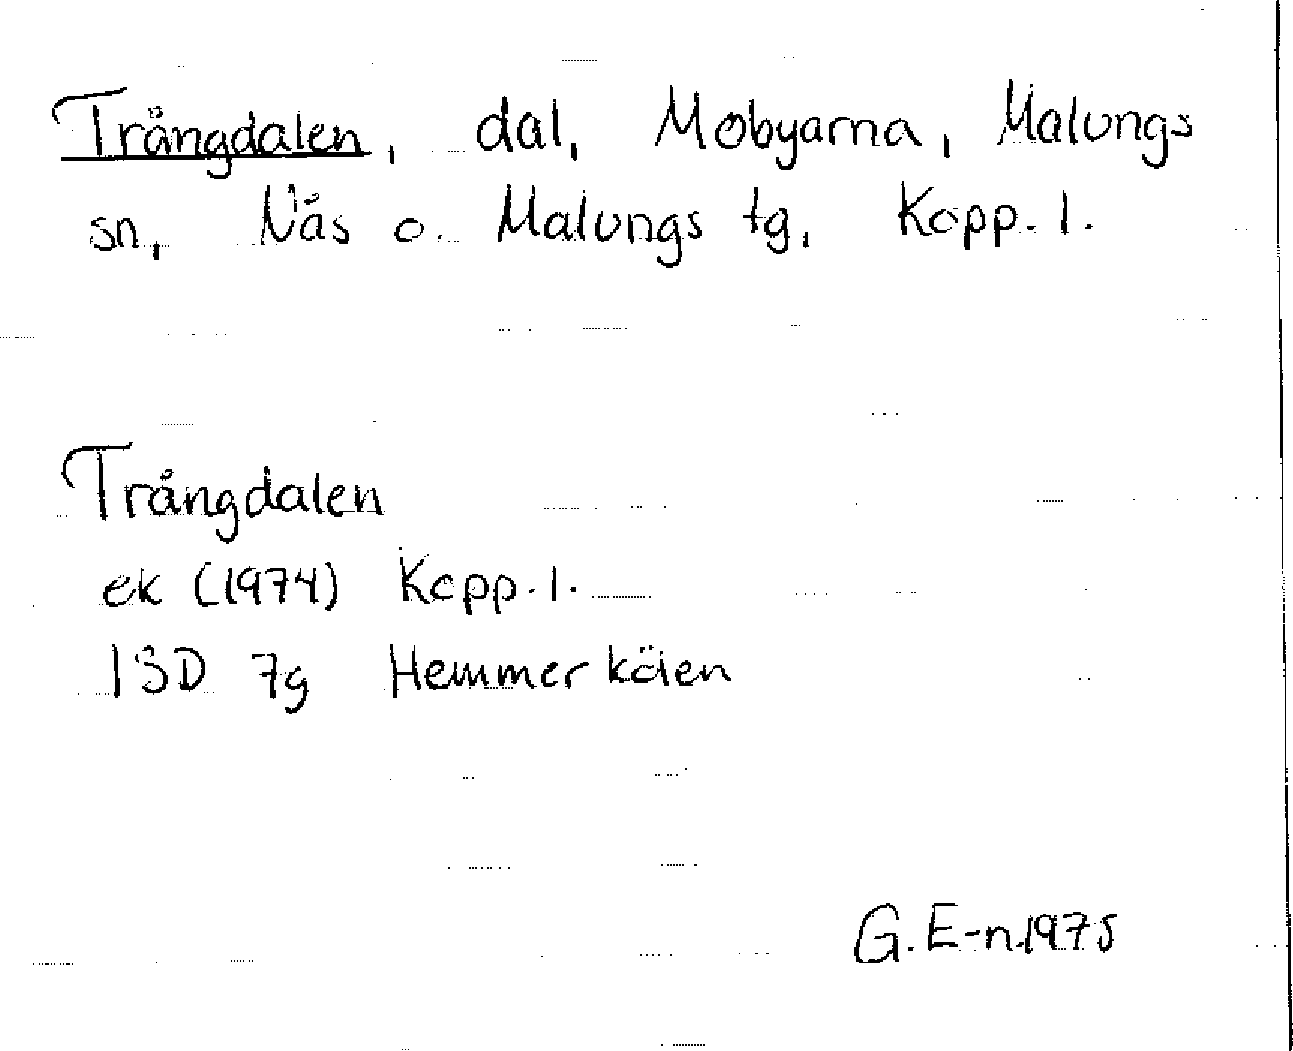 Trångdalen, dal, Mobyarna, Malungs
sn, Nås o. Malungs tg, Kopp. l.
Trångdalen
ek (1974) Kopp. l.
13D 7g Hemmerkölen
G. E-n 1975